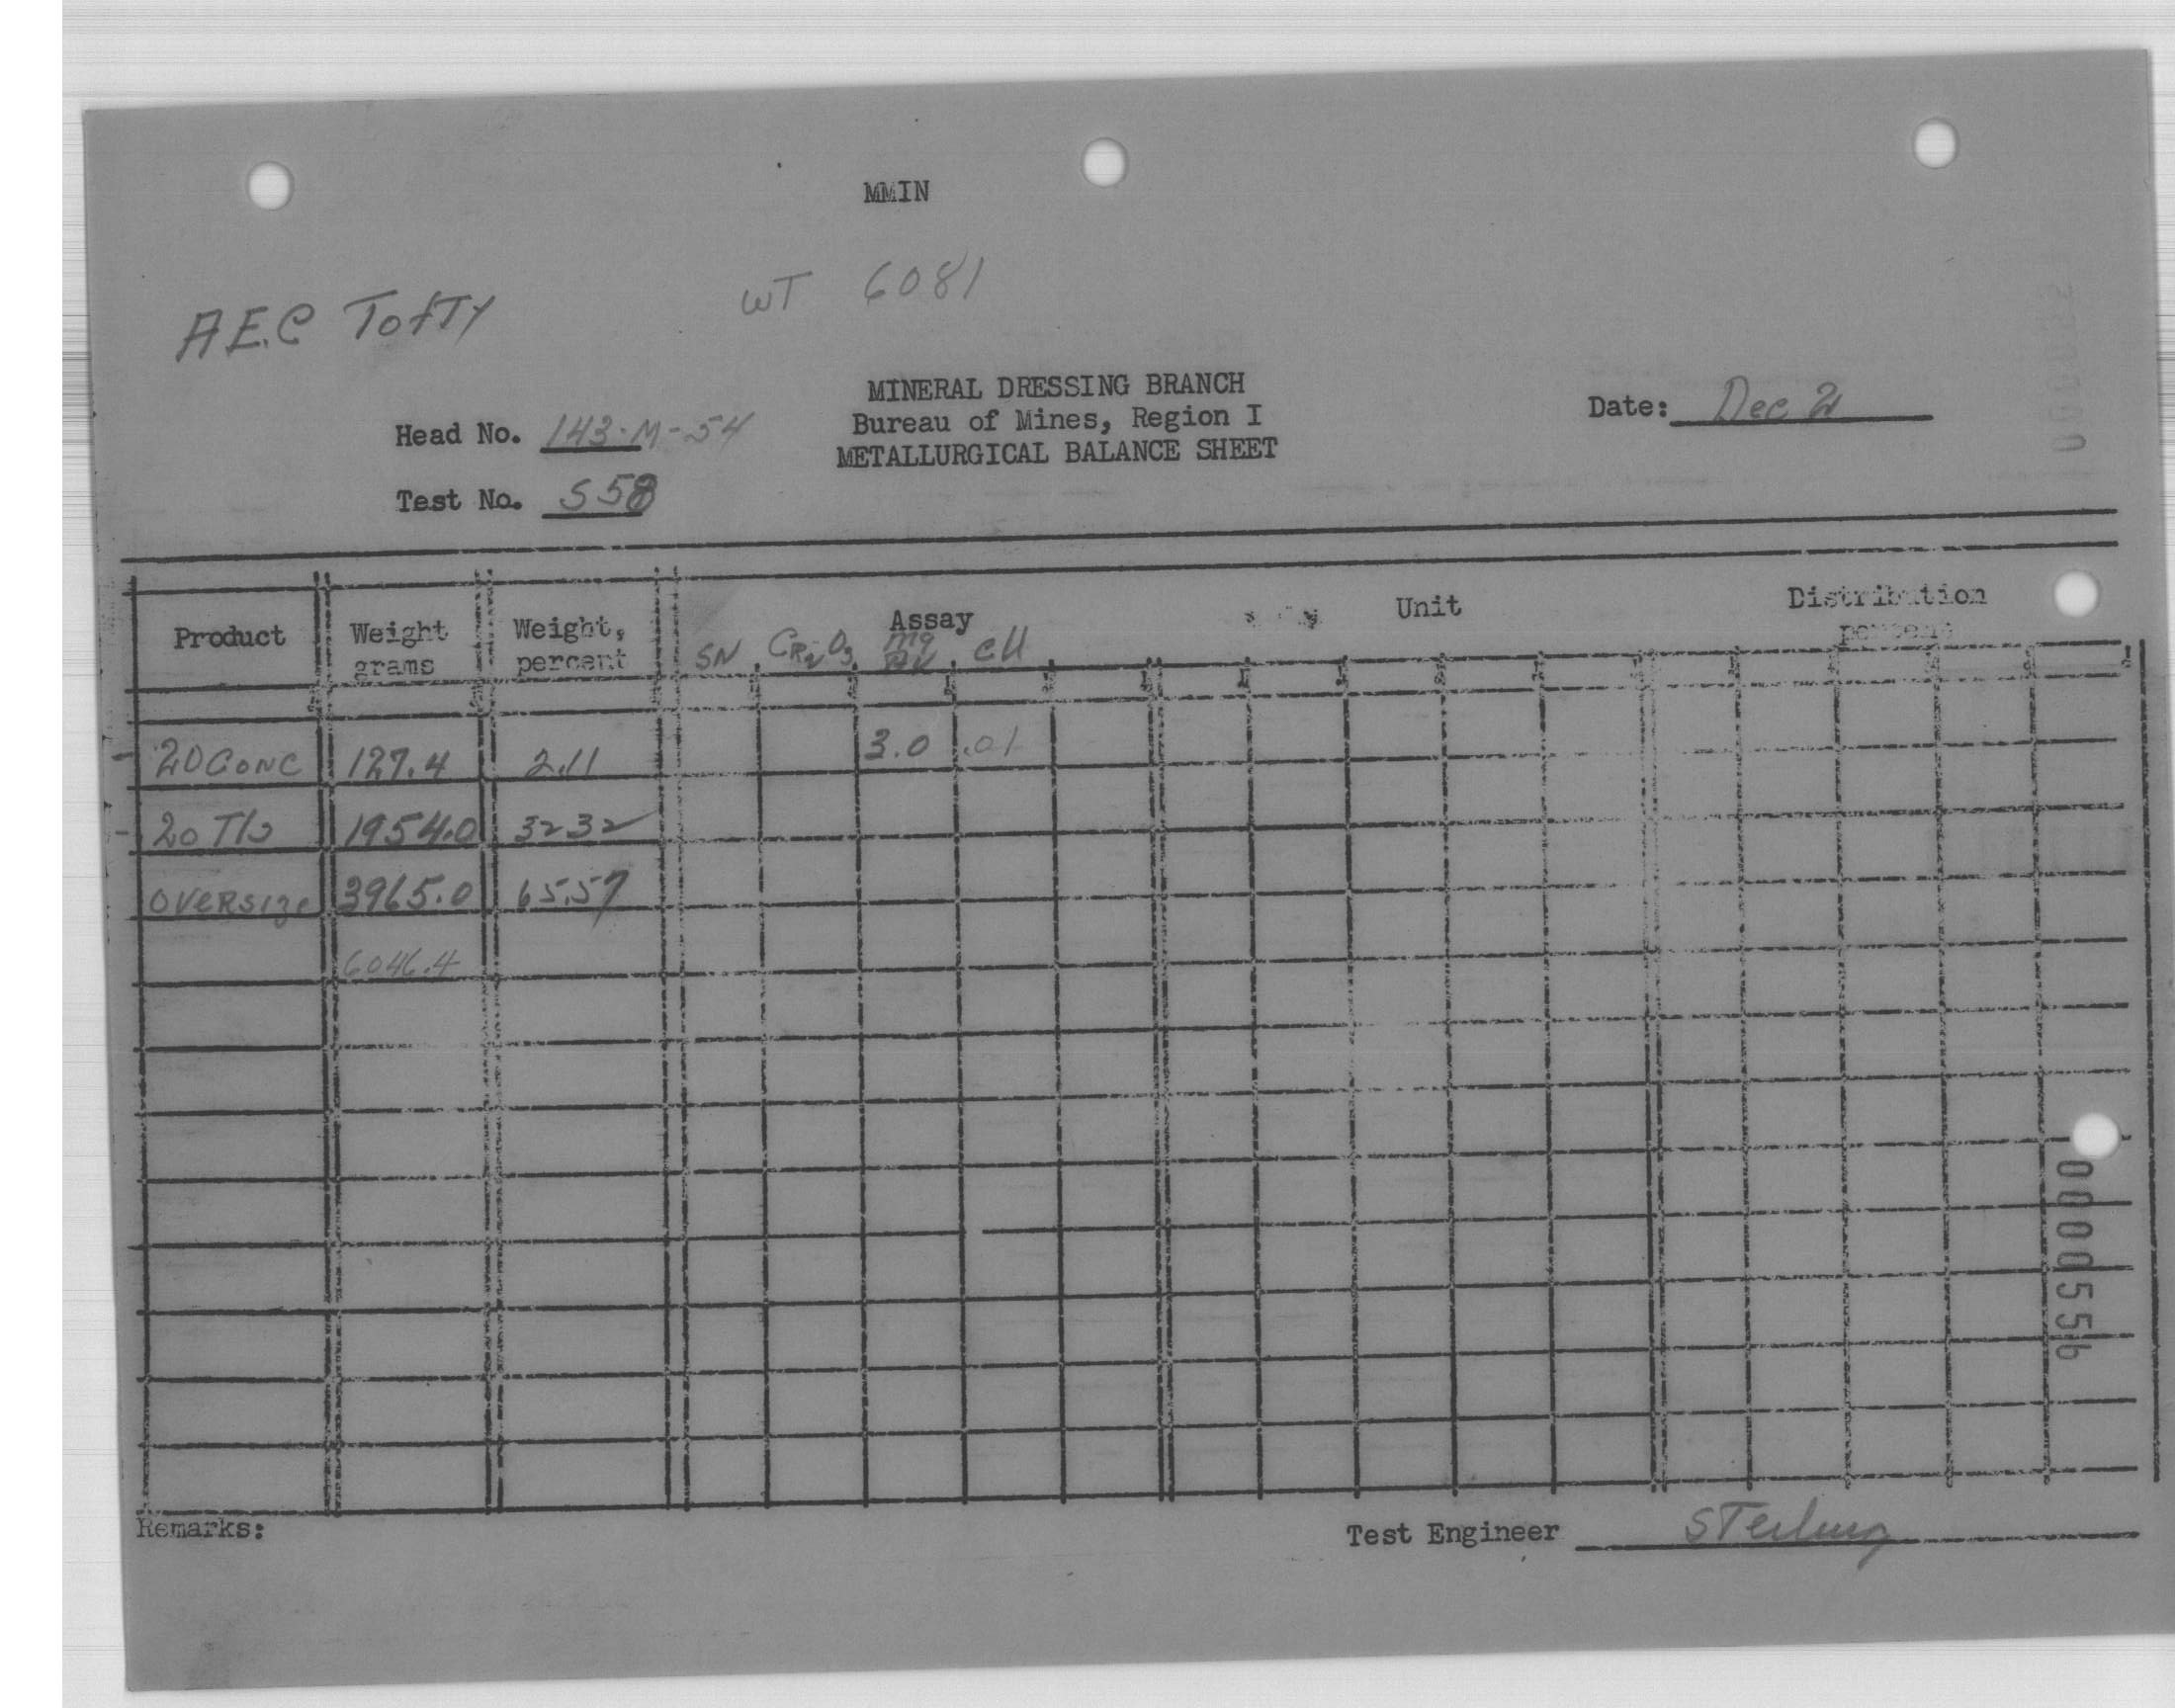 MMIN
WT 6081
A.E.C Tofty
MINERAL DRESSING BRANCH
Bureau of Mines, Region I
METALLURGICAL BALANCE SHEET
Head No. 143-M-54
Date: Dec 2
Test No. S58
Product Weight grams Weight, percent Assay Unit Distribution percent
SN CR2O3 CU
20 CONC 127.4 2.11 3.0 .01
20 Tls 1954.0 32 32
OVERSIZE 3965.0 65.57
6046.4
Remarks:
Test Engineer Sterling
0000556